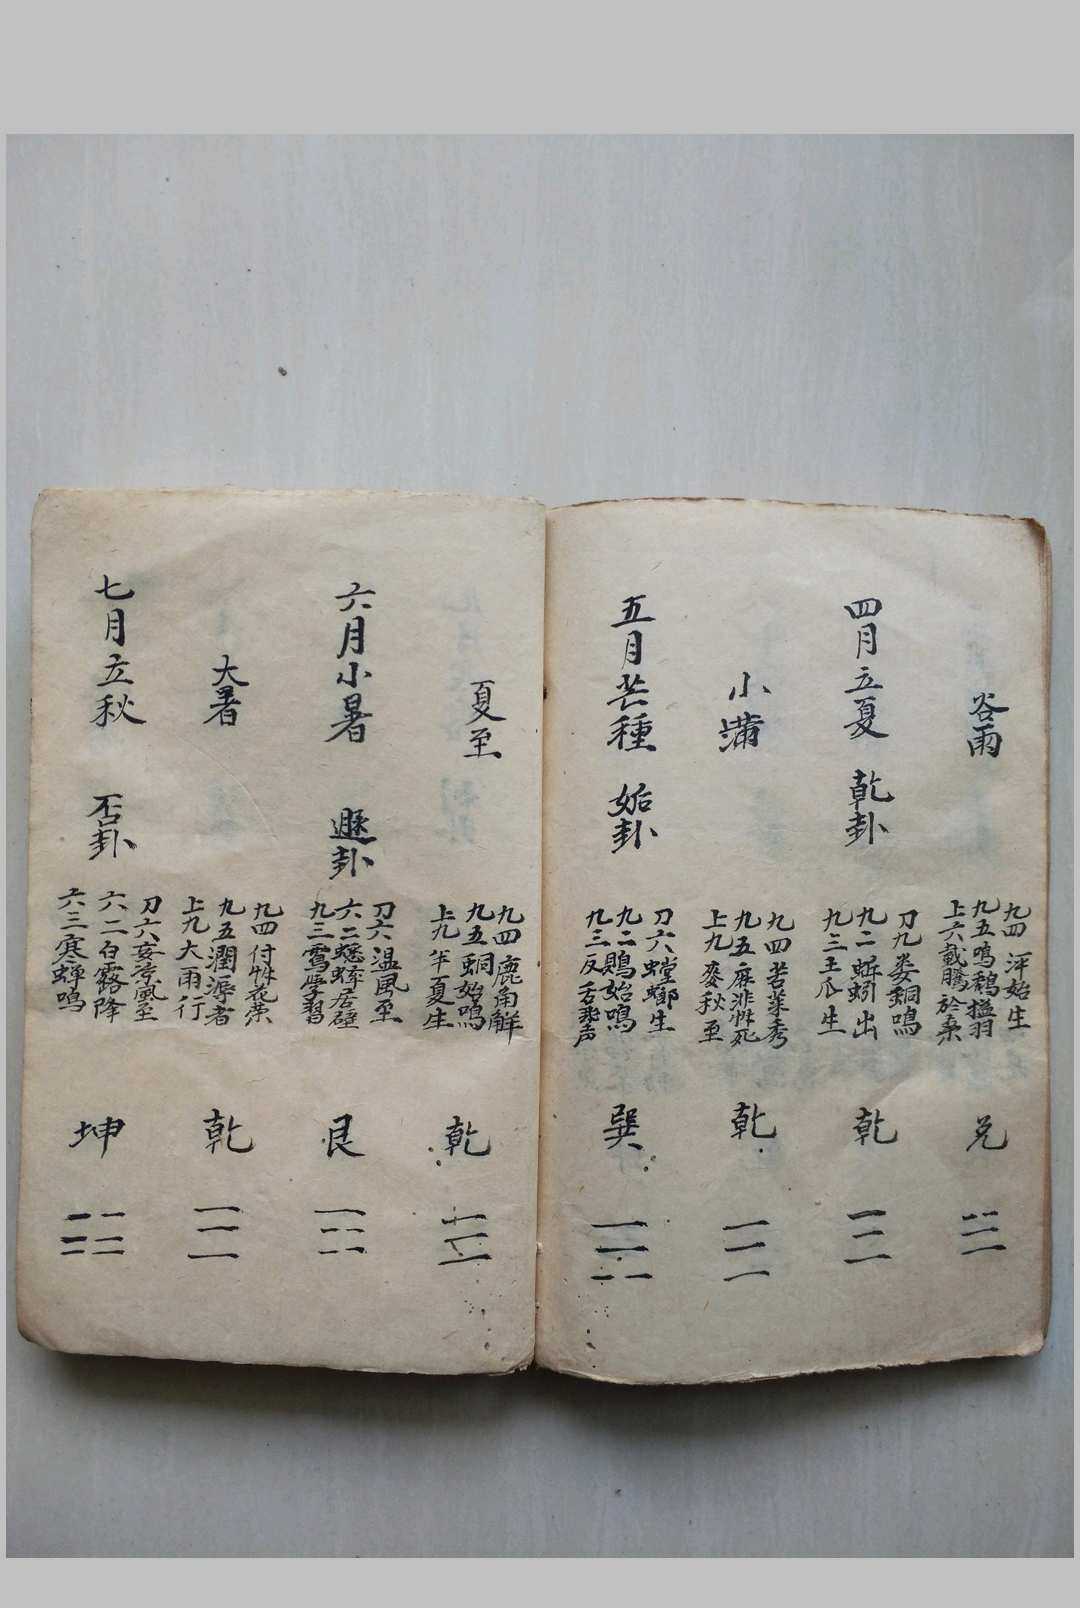 谷雨
九四 泙始生
九五鳴鵓搵羽
上六載騰於桑
兑
四月立夏 乾卦
刀九娄蜩鳴
九二蚯蚓出
九三王瓜生
乾
小满
九四苦菜秀
九五麻非艸死
上九麥秋至
乾
五月芒種 姤卦
刀六螳螂生
九二鵙始鳴
九三反舌無声
巽
夏至
九四鹿角觧
九五蜩始鳴
上九半夏生
乾
六月小暑 遯卦
刀六温風至
六二蟋蟀居壁
九三鴈學習
艮
大暑
九四付艸花荣
九五潤溽者
上九大雨行
乾
七月立秋 否卦
刀六妄凉風至
六二白露降
六三寒蟬鳴
坤